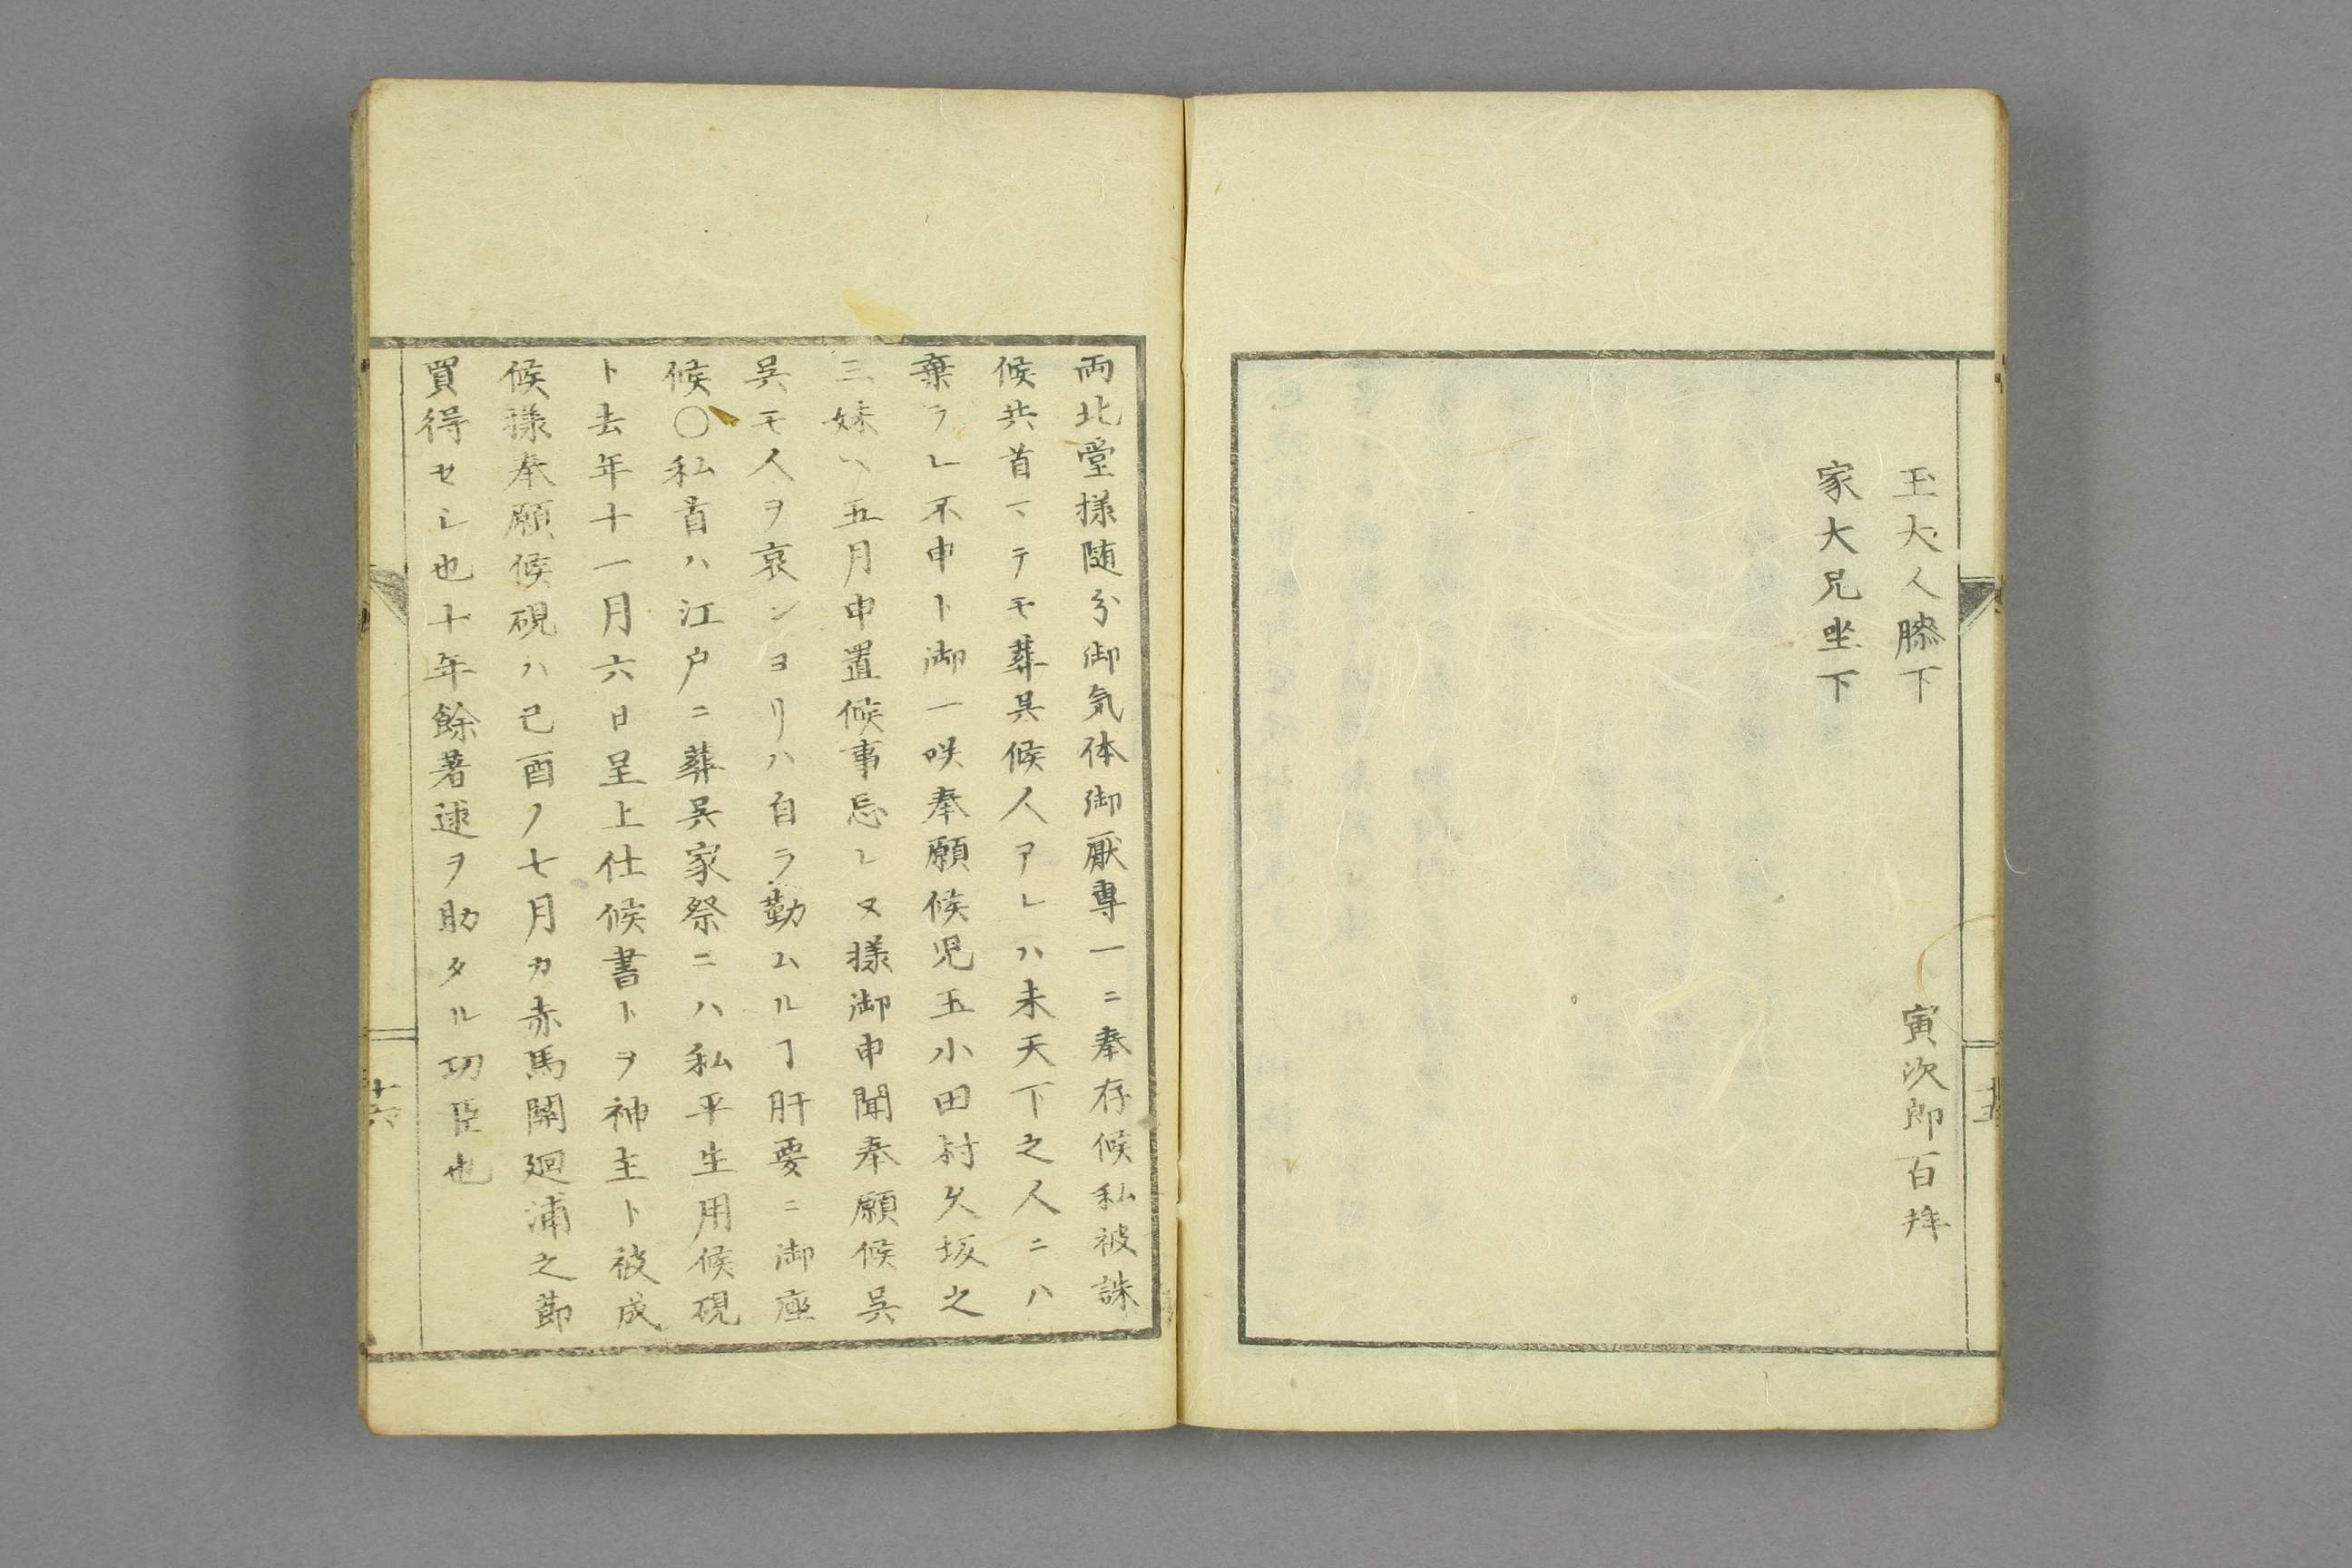 寅次郎百拝
玉大人膝下
家大兄坐下
十五
両北堂様随分御気体御厭専一ニ奉存候私被誅
候共首マテモ葬呉候人アレハ未天下之人ニハ
棄ラレ不申ト御一咲奉願候児玉小田村久坂之
三妹ヘ五月申置候事忘レヌ様御申聞奉願候呉
呉モ人ヲ哀シヨリハ自ラ勤ムルヿ肝要ニ御座
候〇私首ハ江戸ニ葬呉家祭ニハ私平生用候硯
ト去年十一月六日呈上仕候書トヲ神主ト被成
候様奉願候硯ハ己酉ノ七月カ赤馬関廻浦之節
買得セシ也十年餘著述ヲ助タル功臣也
十六